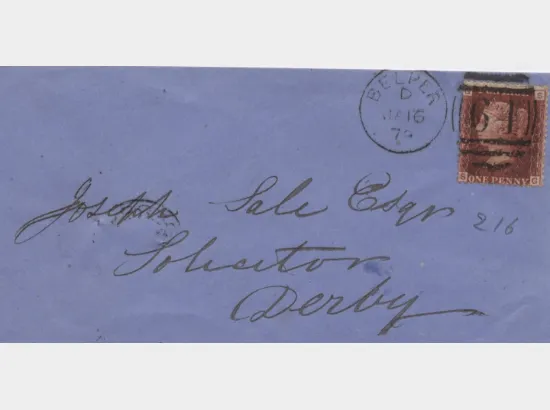 BELPER
D
JA 16
79
ONE PENNY
Joseph Sale Esqr
216
Solicitor
Derby